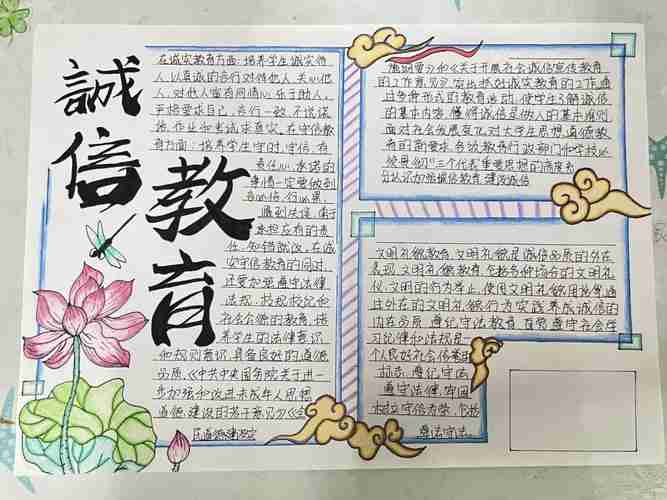 誠信
教育
在诚实教育方面:培养学生诚实待
人,以真诚的言行对待他人、关心他
人,对他人富有同情心,乐于助人。
严格要求自己,言行一致,不说谎
话,作业和考试求真实。在守信教
育方面:培养学生守时、守信、有
责任心,承诺的
事情一定要做到
言必信,行必果,
遇到失误,勇于
承担应有的责
任,知错就改。在诚
实守信教育的同时,
还要加强遵守法律
法规、校规校纪和
社会公德的教育,培
养学生的法律意识
和规则意识,具备良好的道德
品质。《中共中央国务院关于进一
步加强和改进未成年人思想
道德建设的若干意见》《公
民道德建设实
施纲要》和《关于开展社会诚信宣传教育
的工作意见》突出抓好诚实教育的工作,通
过多种形式的教育活动,使学生了解诚信
的基本内容,懂得诚信是做人的基本准则
面对社会发展变化对大学生思想道德教
育的新要求,各级教育行政部门和学校必
须从"三个代表"重要思想的高度充
分认识加强诚信教育,建设诚信
文明礼貌教育,文明礼貌是诚信品质的外在
表现,文明礼貌教育,包括各种场合的文明礼
仪,文明的行为举止,使用文明礼貌用语等通
过外在的文明礼貌行为实践养成诚信的
内在品质,遵纪守法教育,自觉遵守社会学
习纪律和法规是
个人良好社会信誉的
标志,遵纪守法
遵守法律,牢固
树立守信为荣,
遵法守法。